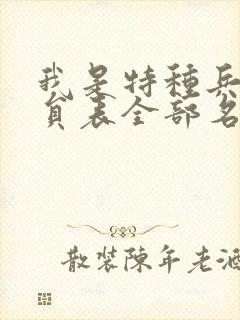 我是特種兵
員表全部名
散裝陳年老酒